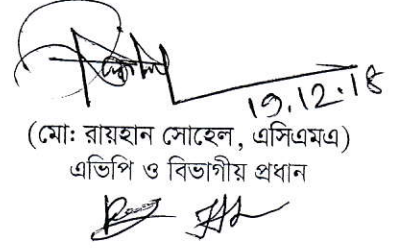 19.12.18
(মো: রায়হান সোহেল, এসিএমএ)
এভিপি ও বিভাগীয় প্রধান